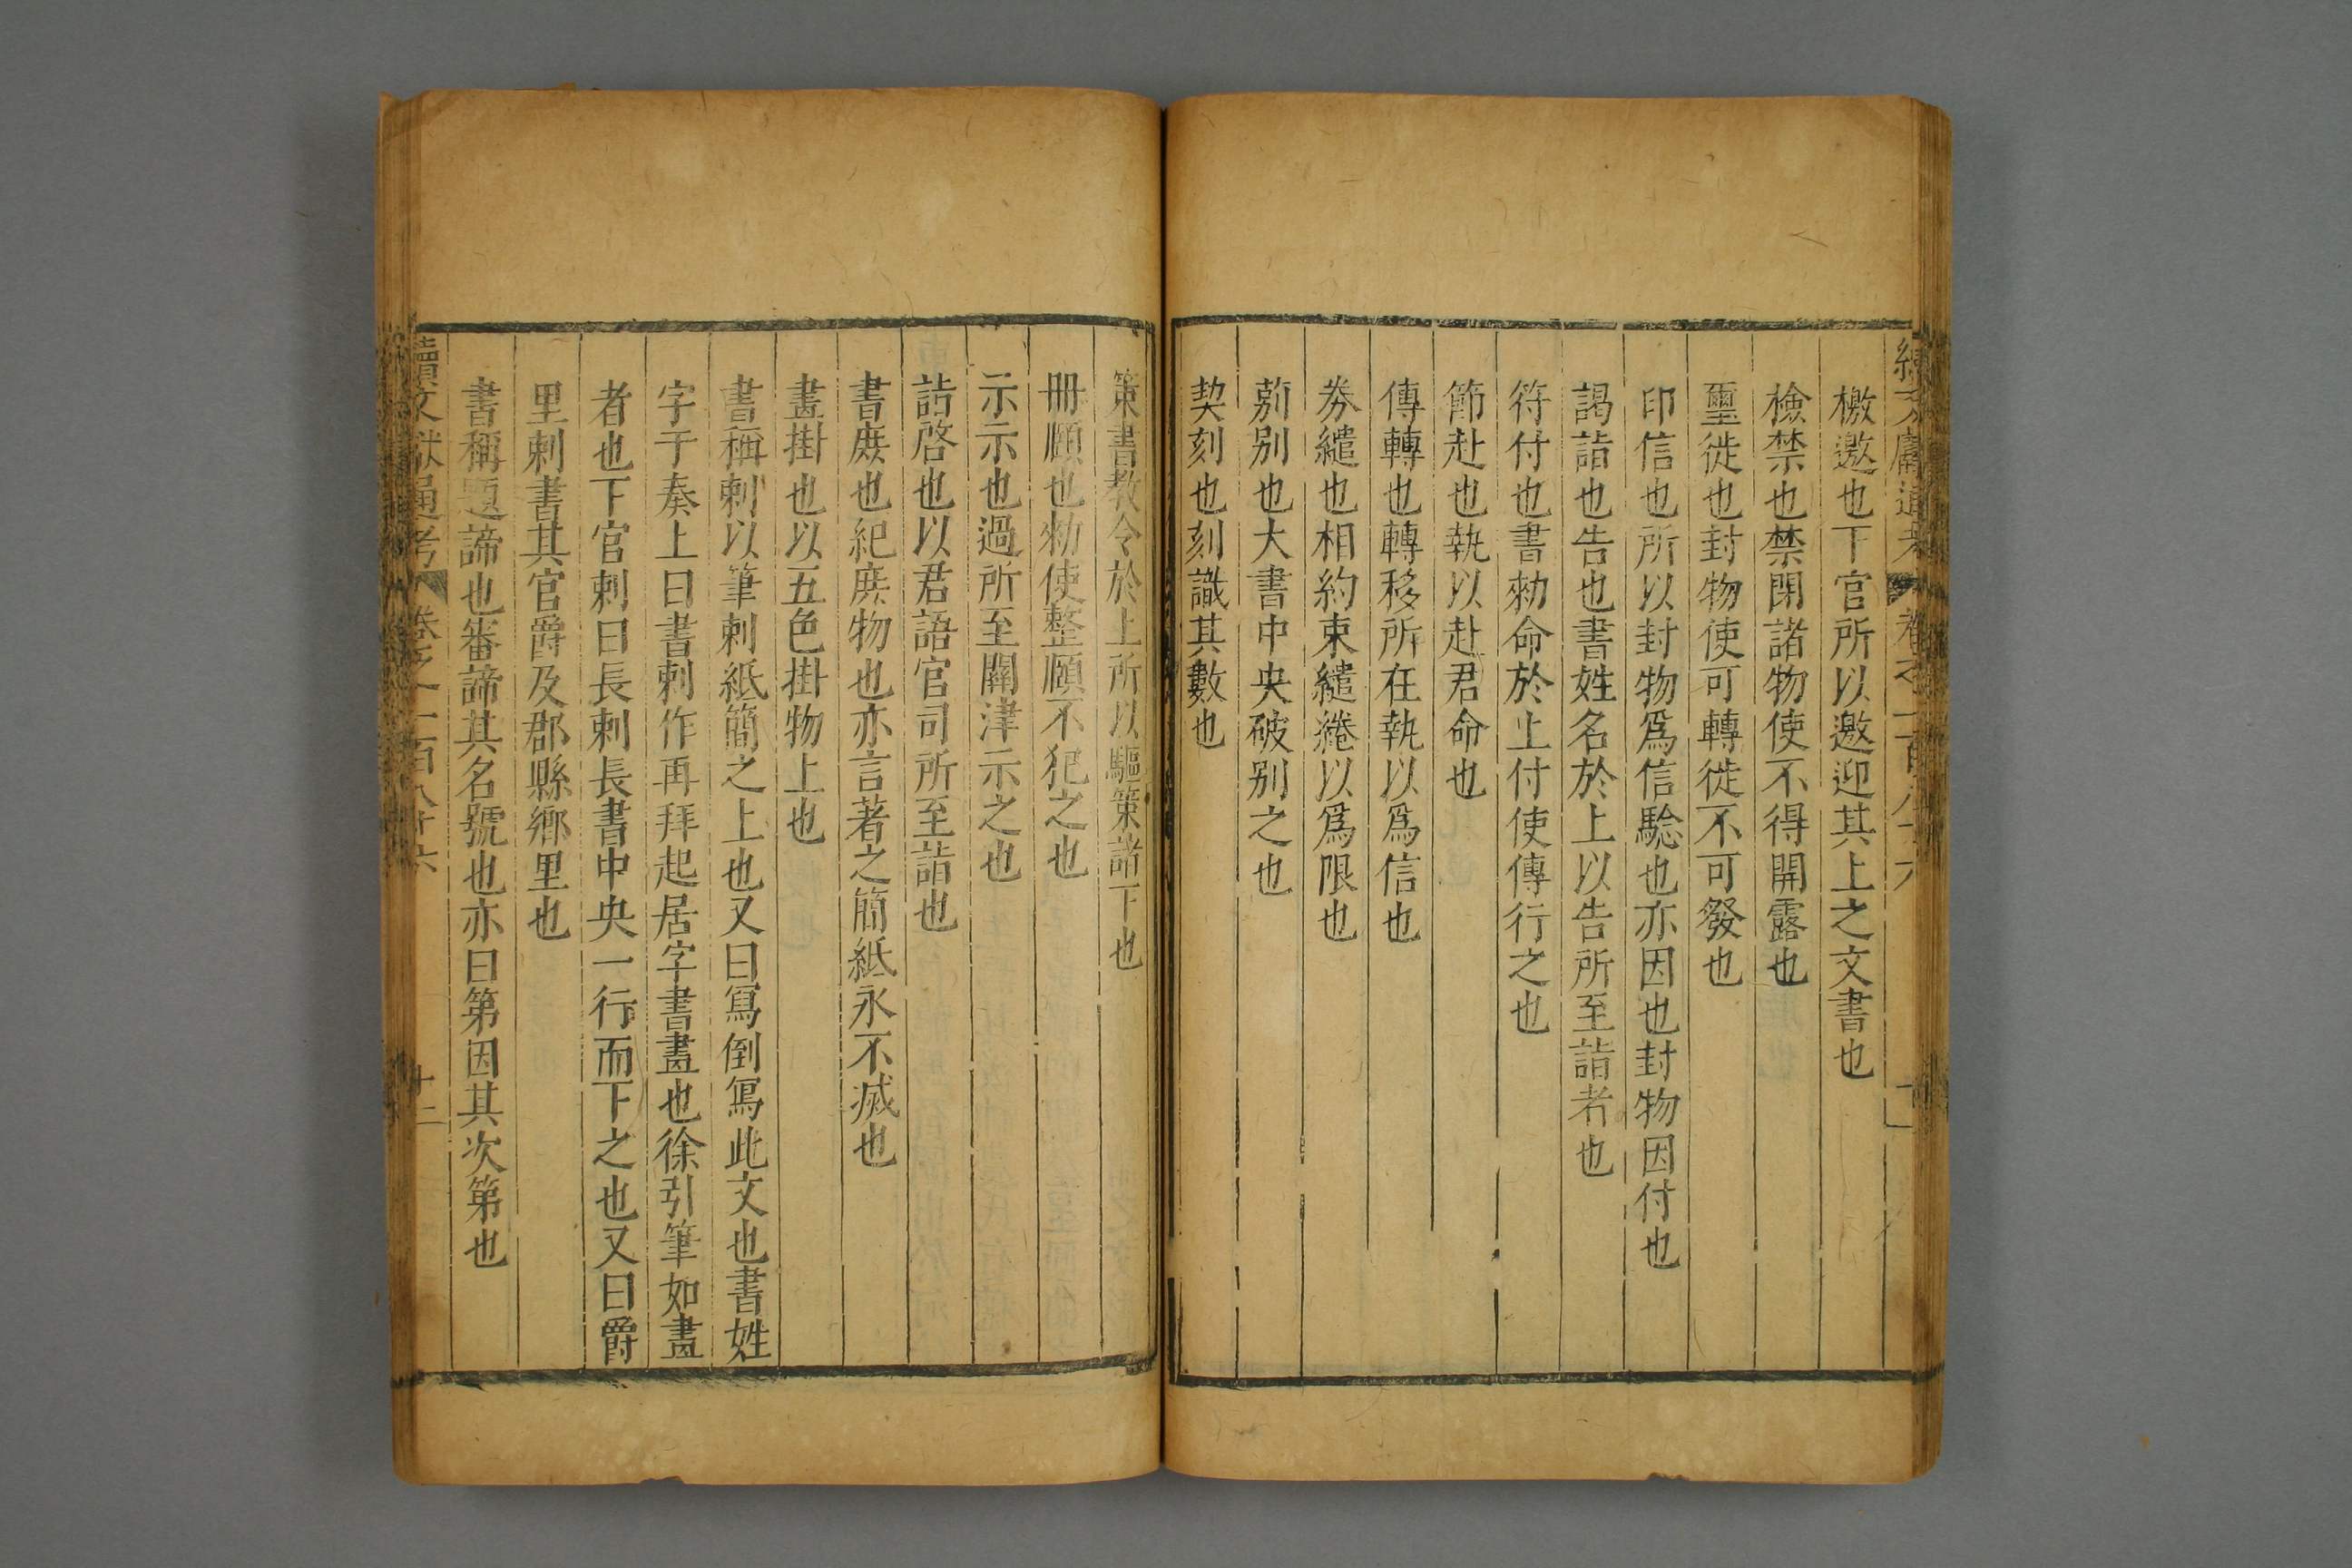 檄邀也下官所以邀迎其上之文書也
檢禁也禁閉諸物使不得開露也
璽徙也封物使可轉徙不可發也
印信也所以封物爲信驗也亦因也封物因付也
謁詣也告也書姓名於上以告所至詣者也
符付也書勑命於上付使傳行之也
節赴也執以赴君命也
傳轉也轉移所在執以爲信也
券繾也相約束繾綣以爲限也
莂别也大書中央破别之也
契刻也刻識其數也
策書教令於上所以驅策諸下也
冊願也勑使整願不犯之也
示示也過所至關津示之也
詣啓也以君語官司所至詣也
書庻也紀庻物也亦言著之簡紙永不滅也
畫掛也以五色掛物上也
書稱刺以筆刺紙簡之上也又曰寫倒寫此文也書姓
字于奏上曰書刺作再拜起居字書盡也徐引筆如畫
者也下官刺曰長刺長書中央一行而下之也又曰爵
里刺書其官爵及郡縣鄉里也
書稱題諦也審諦其名號也亦曰第因其次第也
續文獻通考 卷之一百八十六 十二